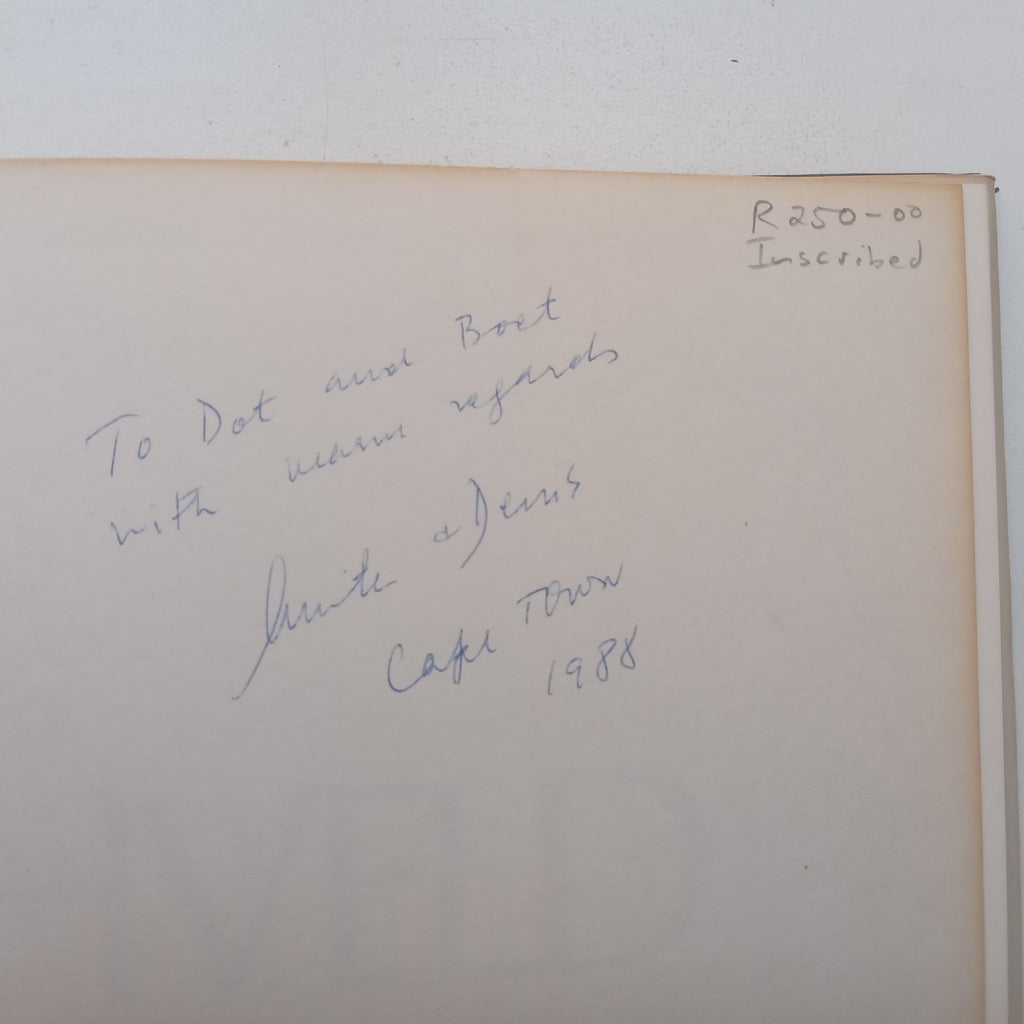 R250-00
Inscribed
To Dot and Boet
with warm regards
& Denis
Cape Town
1988